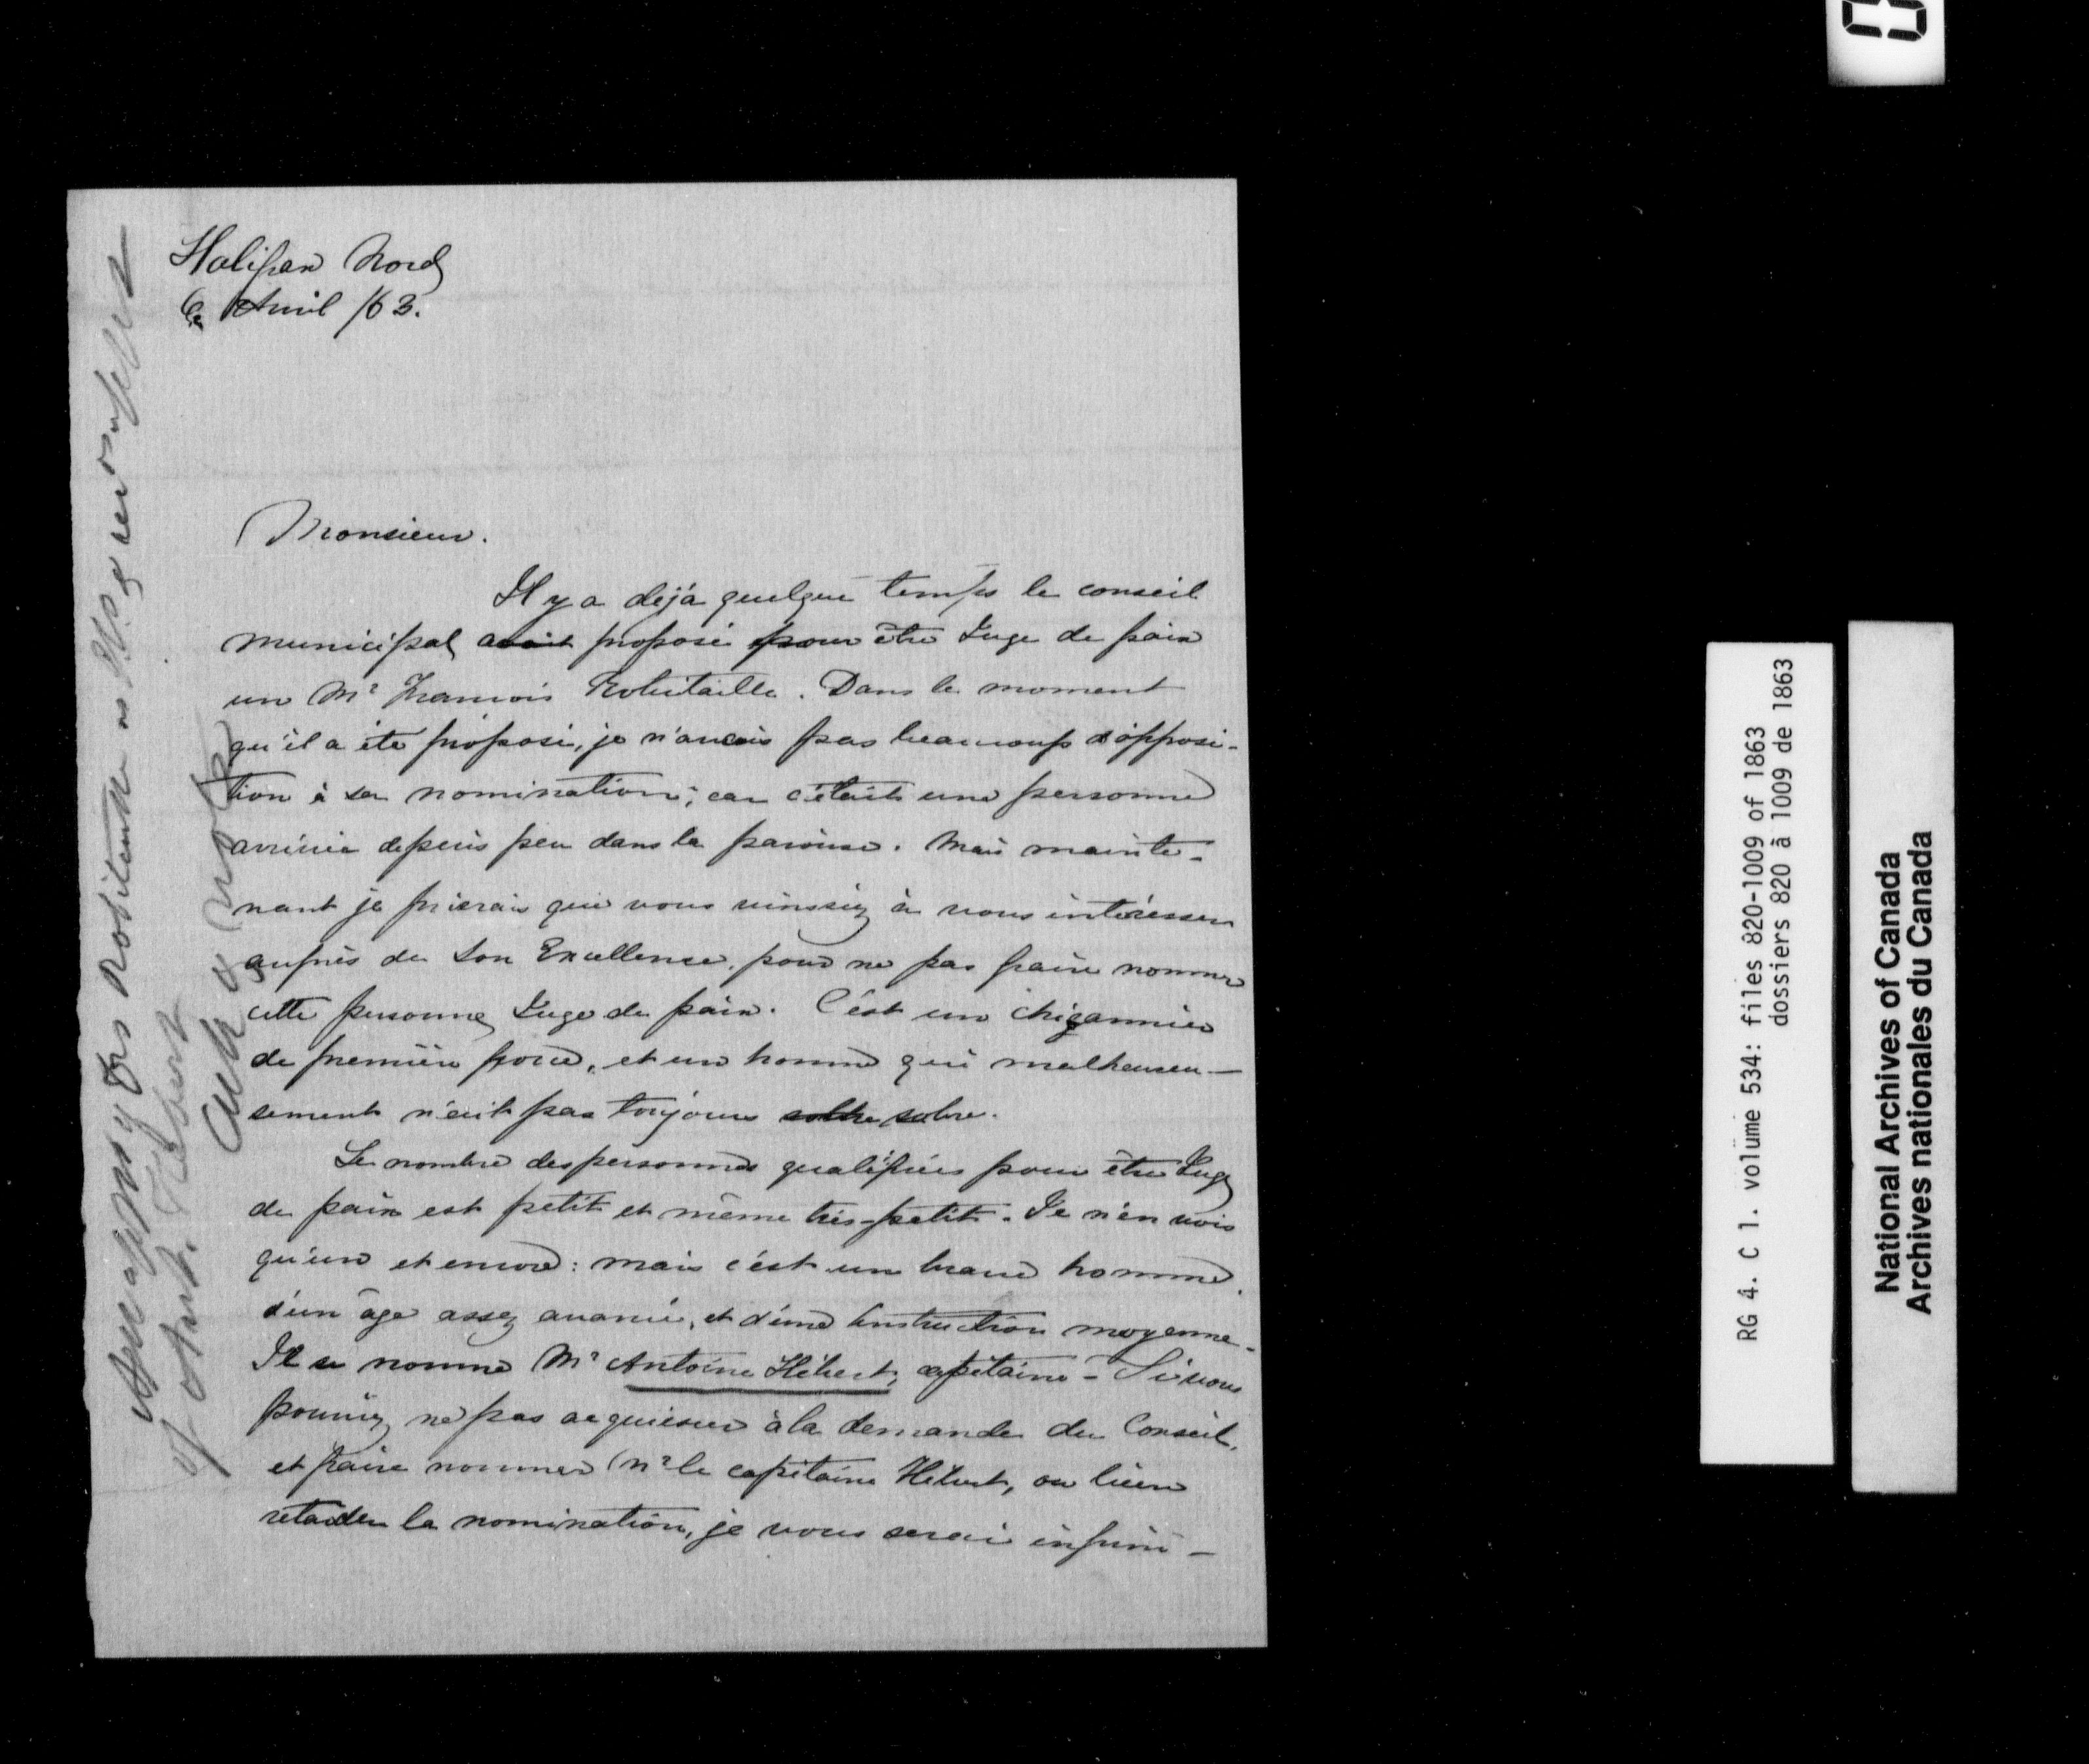 Halifax Nord
6 Avril /63.
Monsieur.
Il y a déja quelque temps le conseil
municipal avait proposé pour être Juge de paix
un Mr Francois Robitaille. Dans le moment
qu'il a été proposé, je n'avais pas beaucoup d'opposi-
tion à sa nomination; car c'était une personne
arrivée depuis peu dans la paroisse. Mais mainte-
nant je prierais que vous vinssiez à vous intéresser
auprès de Son Excellence, pour ne pas faire nommer
cette personne Juge de paix. C'est un chicannier
de première force, et un homme qui malheureu-
sement n'est pas toujours sobre.
Le nombre des personnes qualifiées pour être Juge
de paix est petit et même très-petit. Je n'en vois
qu'un et encore: mais c'est un brave homme,
d'un âge assez avancé, et d'une instruction moyenne.
Il se nomme Mr Antoine Hébert, capitaine - Si vous
pouviez ne pas acquiescer à la demande du Conseil,
et faire nommer Mr le capitaine Hébert, ou bien
retarder la nomination, je vous serai infini-
of Frs Robitaille as J.P.
of Ant. Hébert
RG 4. C 1. volume 534: files 820-1009 of 1863
dossiers 820 à 1009 de 1863
National Archives of Canada
Archives nationales du Canada